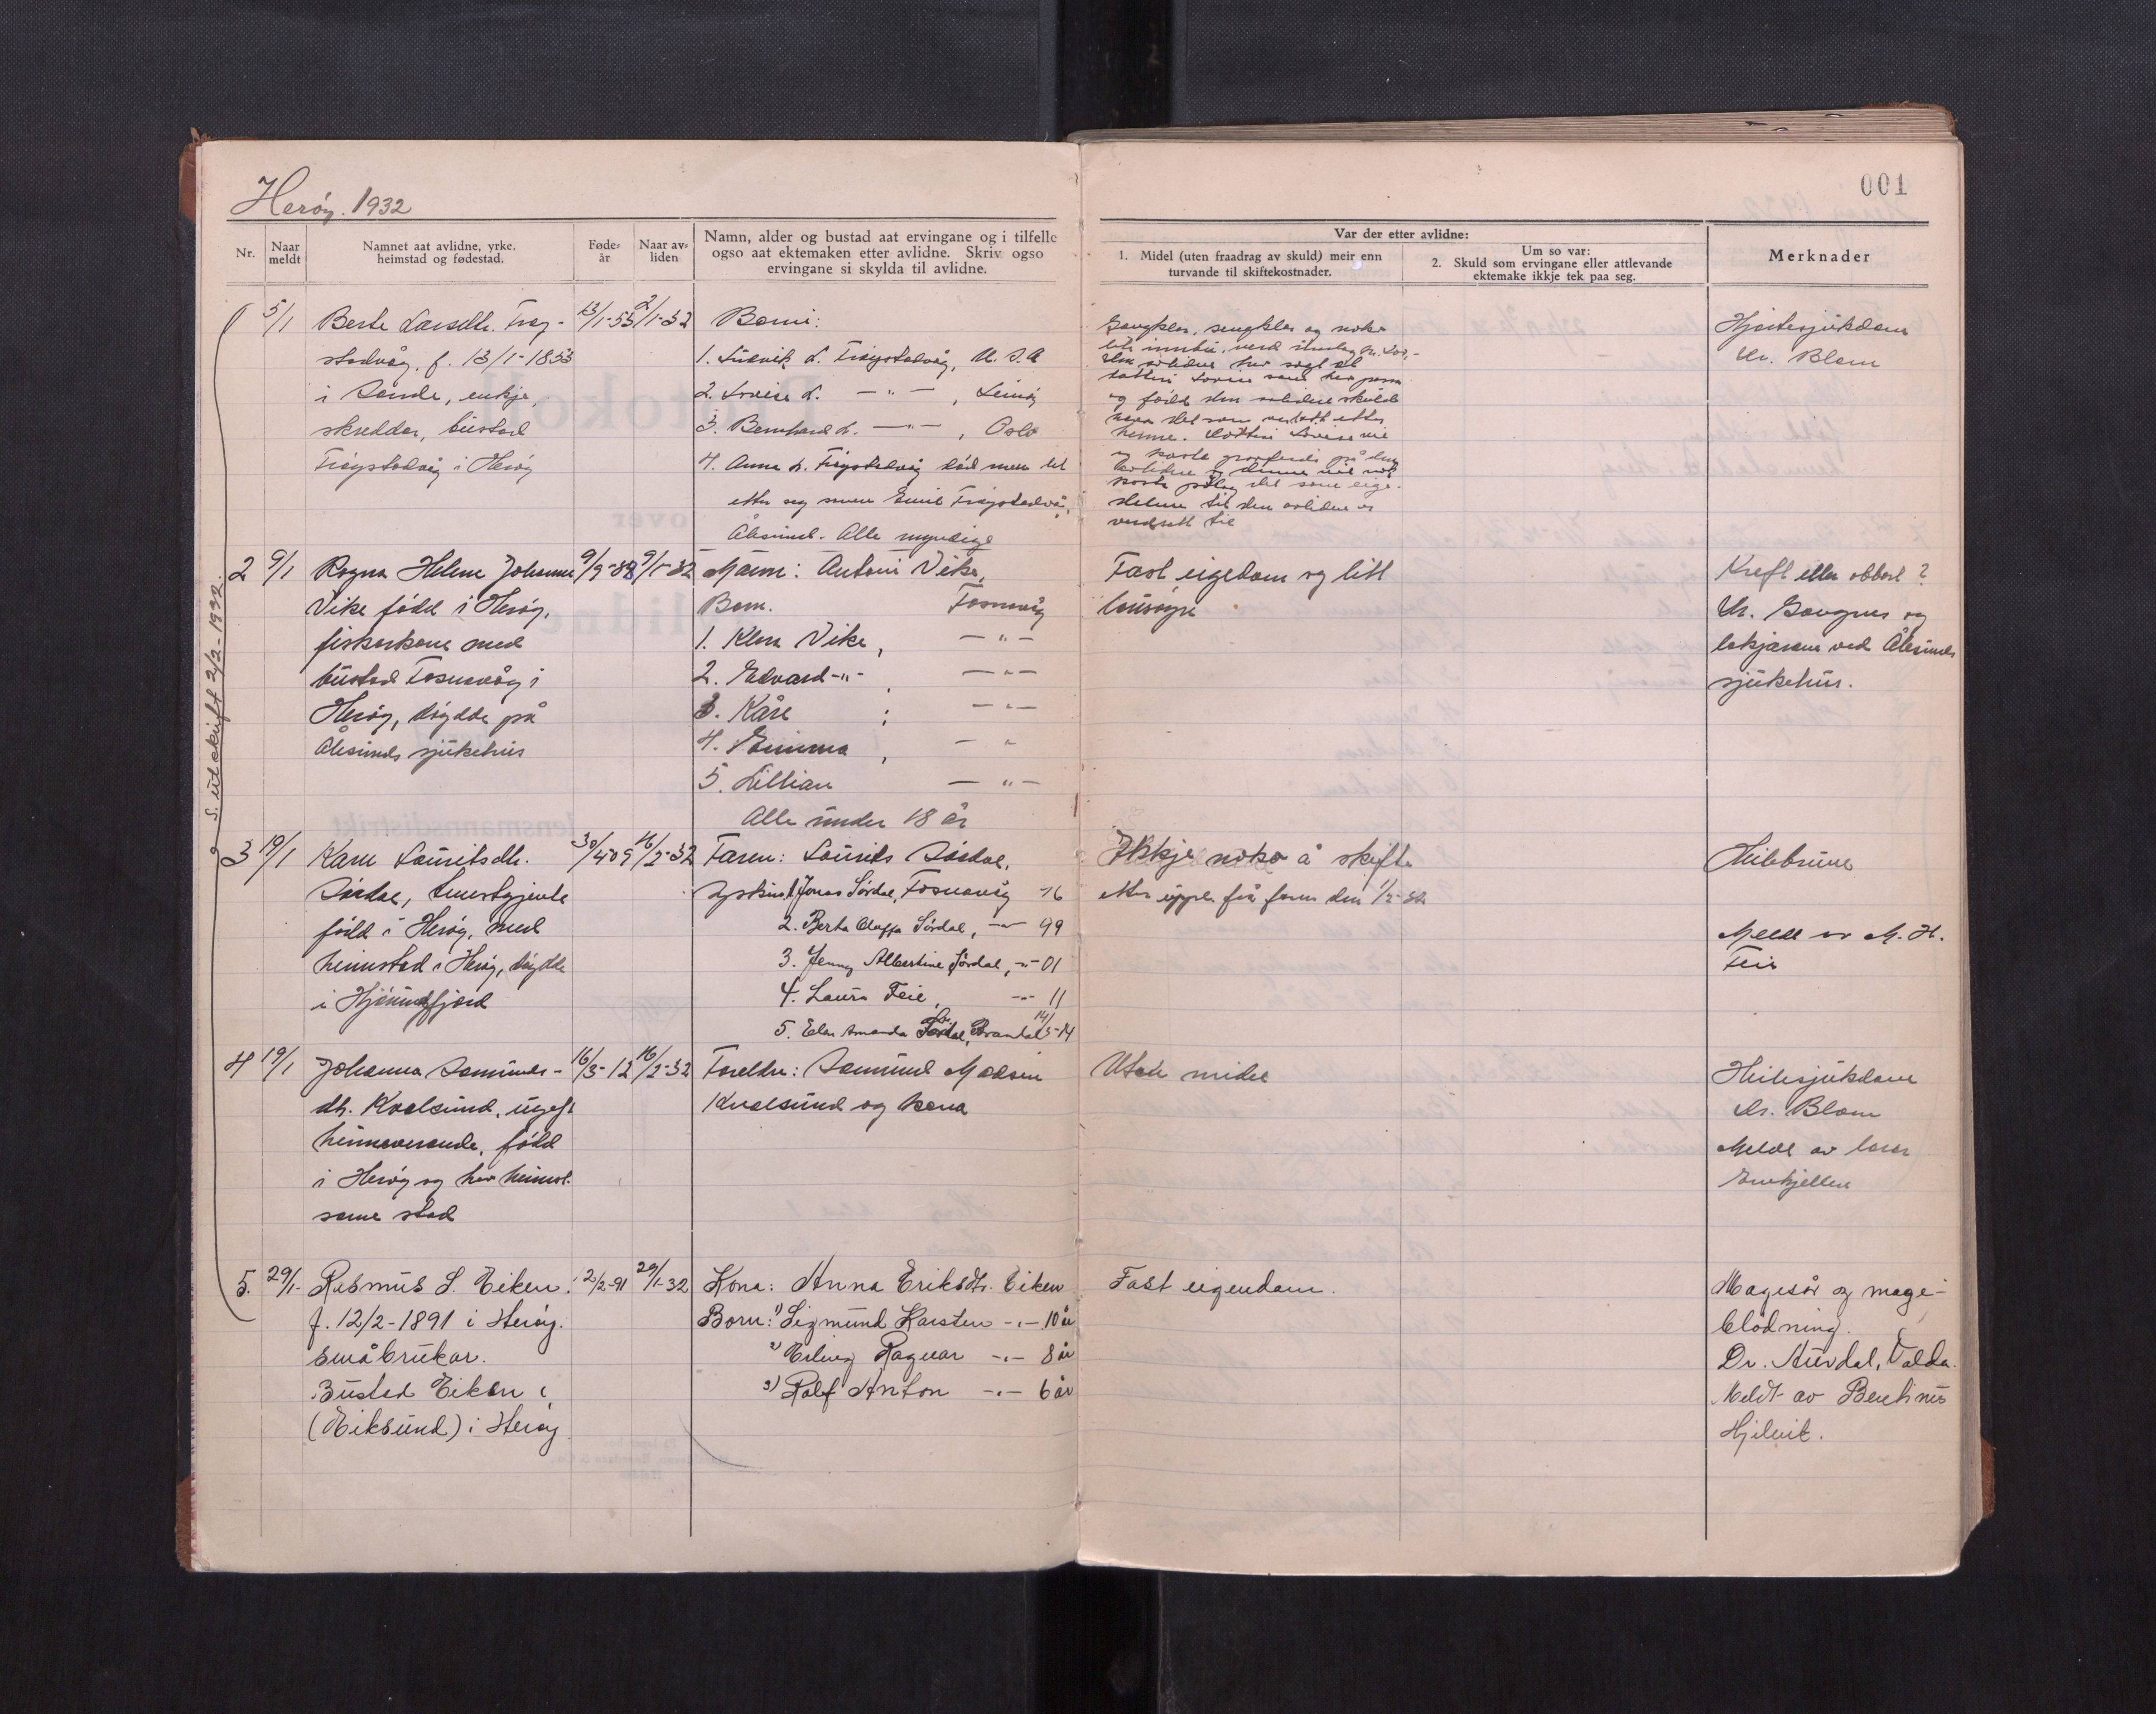 001
Herøy. 1932
Nr.
Naar meldt
Namnet aat avlidne, yrke, heimstad og fødestad.
Føde-år
Naar av-liden
Namn, alder og bustad aat ervingane og i tilfelle
ogso aat ektemaken etter avlidne. Skriv ogso
ervingane si skylda til avlidne.
Var der etter avlidne:
1. Midel (uten fraadrag av skuld) meir enn
turvande til skiftekostnader.
Um so var:
2. Skuld som ervingane eller attlevande
ektemake ikkje tek paa seg.
Merknader
S. utskrift 2/2-1932.
1 5/1 Berte Larsdtr. Frøy- 13/1-53 2/1-32
stadvåg, f. 13/1-1853
i Sande, enkje,
skreddar, bustad
Frøystadvåg i Herøy
Born:
1. Ludvik L. Frøystadvåg, U.S.A
2. Lovise L. —"— , Leinøy
3. Bernhard L. —"— , Oslo
4. Anna L. Frøystadvåg død men let
etter seg sonen Emil Frøystadvåg,
Ålesund. Alle myndige
Gangklær, sengklær og noko
og stelt den avlidne skulde
henne. Dotteri Lovise vil
verdsett til
Hjartesjukdom
Dr. Blom
2 9/1 Ragna Helene Johanne 9/9-88 9/1-32
Vike fødd i Herøy,
fiskarkone med
bustad Fosnavåg i
Herøy, døydde på
Ålesunds sjukehus
Mann: Antoni Vike,
Born. Fosnavåg
1. Klara Vike, —"—
2. Edvard -"- , —"—
3. Kåre , —"—
4. Emma , — "
5. Lillian —"—
Alle under 18 år
Fast eigedom og litt
lausøyre
Kreft eller abbort?
Dr. Gangnes og
lækjarane ved Ålesunds
sjukehus.
3 19/1 Karen Lauritsdtr. 30/4-09 16/1-32
Sørdal, tenestgjente
fødd i Herøy, med
heimstad i Herøy, døydde
i Hjørundfjord
Faren: Laurits Sørdal,
Syskin: 1. Jonas Sørdal, Fosnavåg 96
2. Berta Oluffa Sørdal, —"— 99
3. Jenny Albertine Sørdal, -"- 01
4. Laura Teie, -"- 11
5. Amanda Sørdal, Brandal 14/5-14
Ikkje noko å skifta
etter uppl. frå faren den 1/2-32
Heilebrune
Meldt av M. H.
Teie
4 19/1 Johanna Samunds- 16/3-12 16/1-32
dtr. Kvalsund, ugift
heimeverande, fødd
i Herøy og hev heimst.
same stad
Foreldre: Samund Madsen
Kvalsund og kona
Utan midel
Heilesjukdom
Dr. Blom
Meldt av lærar
5. 29/1- Rasmus S. Eiken. 12/2-91 29/1-32
f. 12/2-1891 i Herøy.
småbrukar.
Bustad Eiken i
(Eiksund) i Herøy
Kona: Anna Eriksdtr. Eiken
Born: 1) Sigmund Karsten -"- 10 år
2) Erling Ragnar -"- 8 år
3) Rolf Anton -"- 6 år
Fast eigendom.
Magesår og mage-
blødning.
Dr. Aurdal, Volda.
Meldt av Bentinus
Hjelvik.